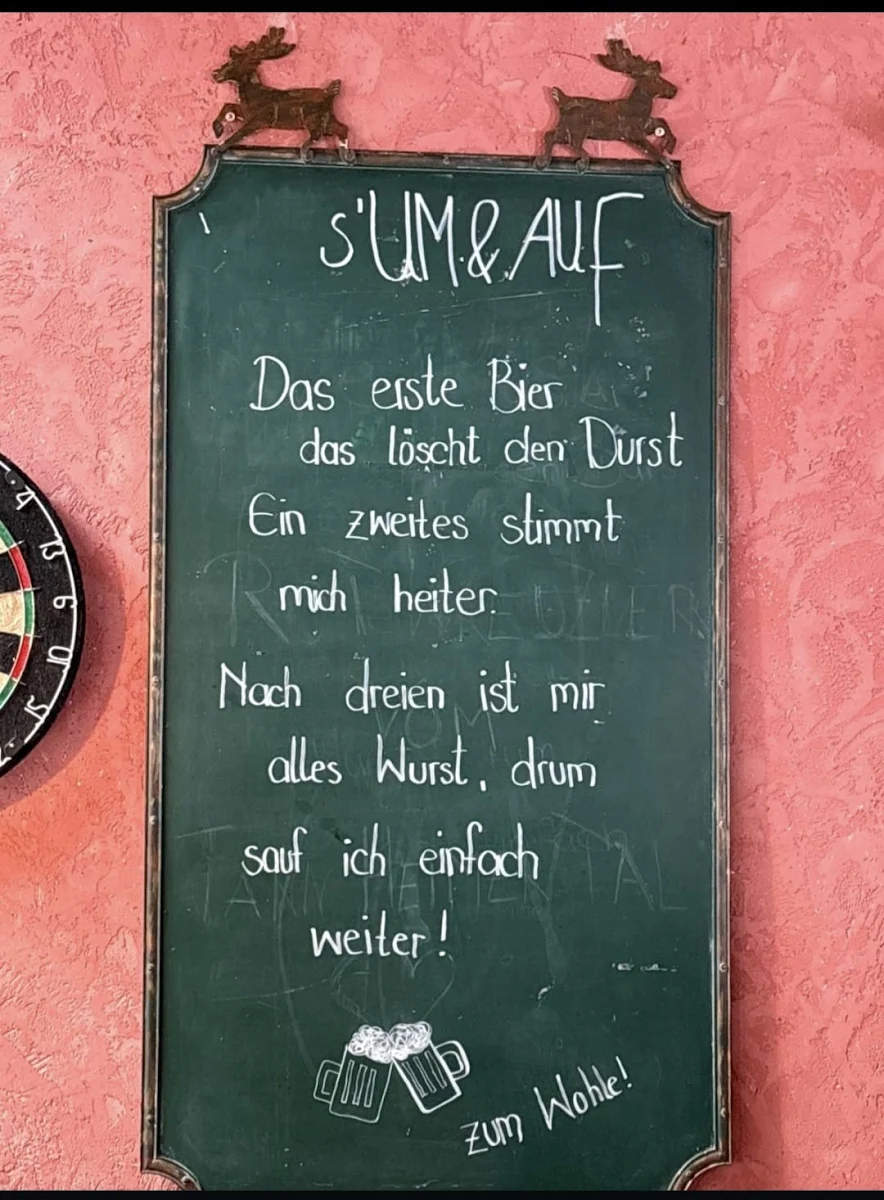 S'UM & AUF
Das erste Bier
das löscht den Durst
Ein zweites stimmt
mich heiter.
Nach dreien ist mir
alles Wurst, drum
sauf ich einfach
weiter!
zum Wohle!
4
13
6
10
15